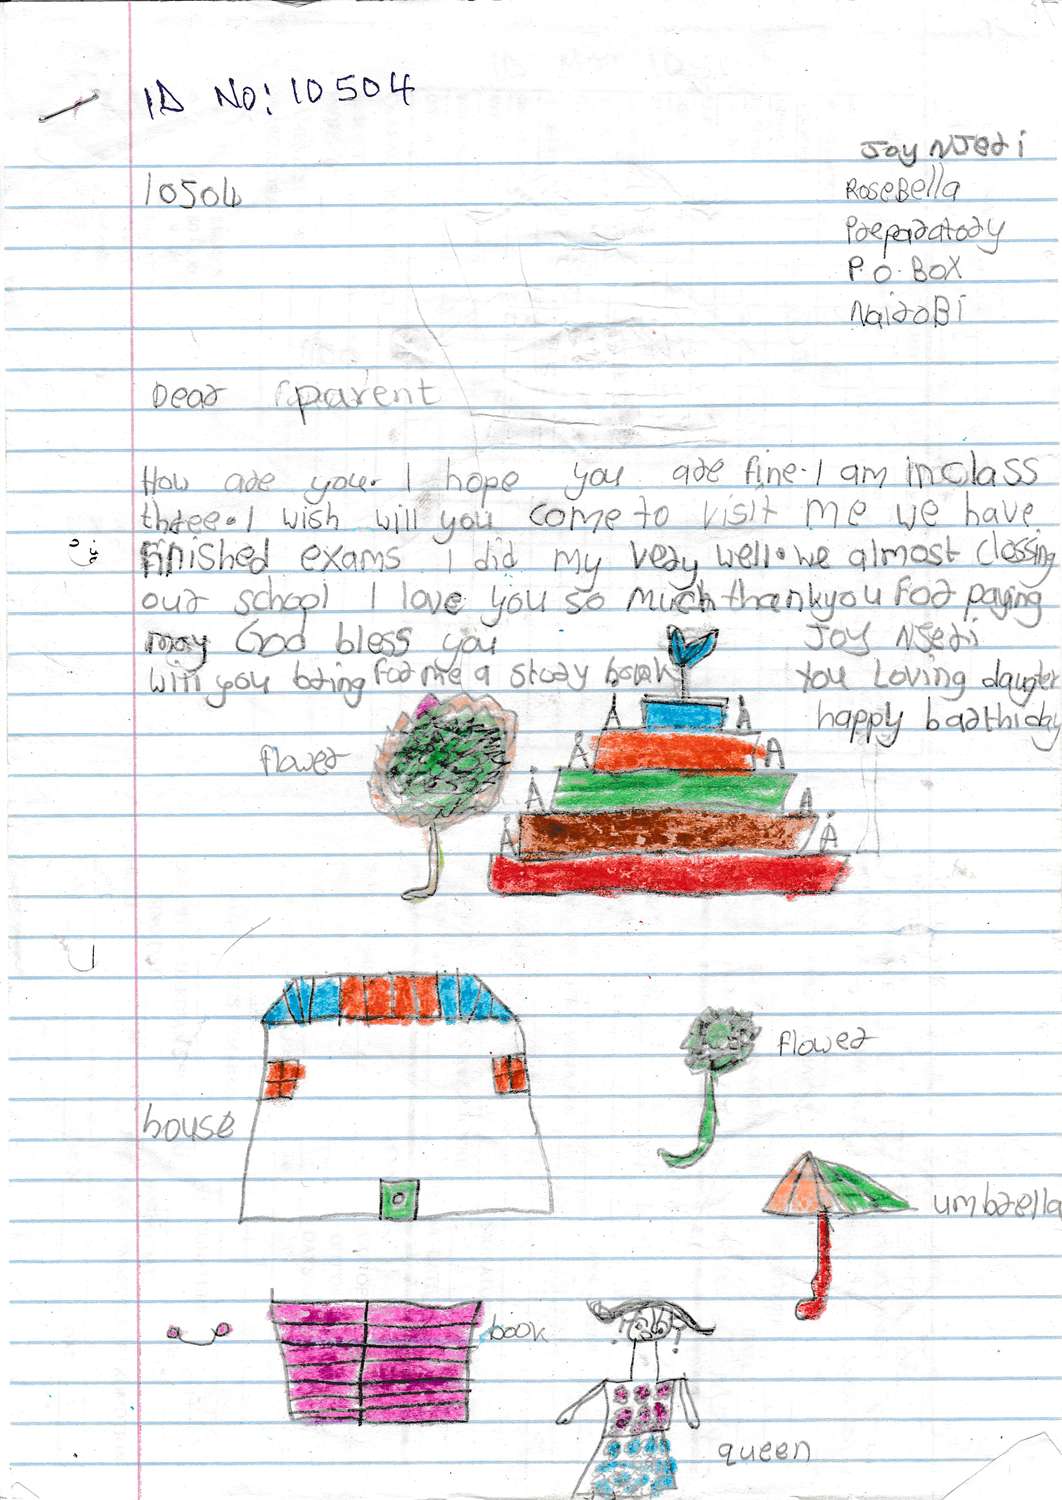 ID No: 10504
Joy Njeri
10504
RoseBella
Preparatory
P.O. BOX
NairoBi
Dear parent
How are you. I hope you are fine. I am in class
three. I wish will you come to visit me we have
finished exams I did my very well. we almost clossing
our school I love you so much thankyou For paying
may God bless you
Joy Njeri
will you bring For me a story book
you Loving daugter
happy barthiday
flower
A A
A A
A A
A A
flower
house
umbrella
book
queen